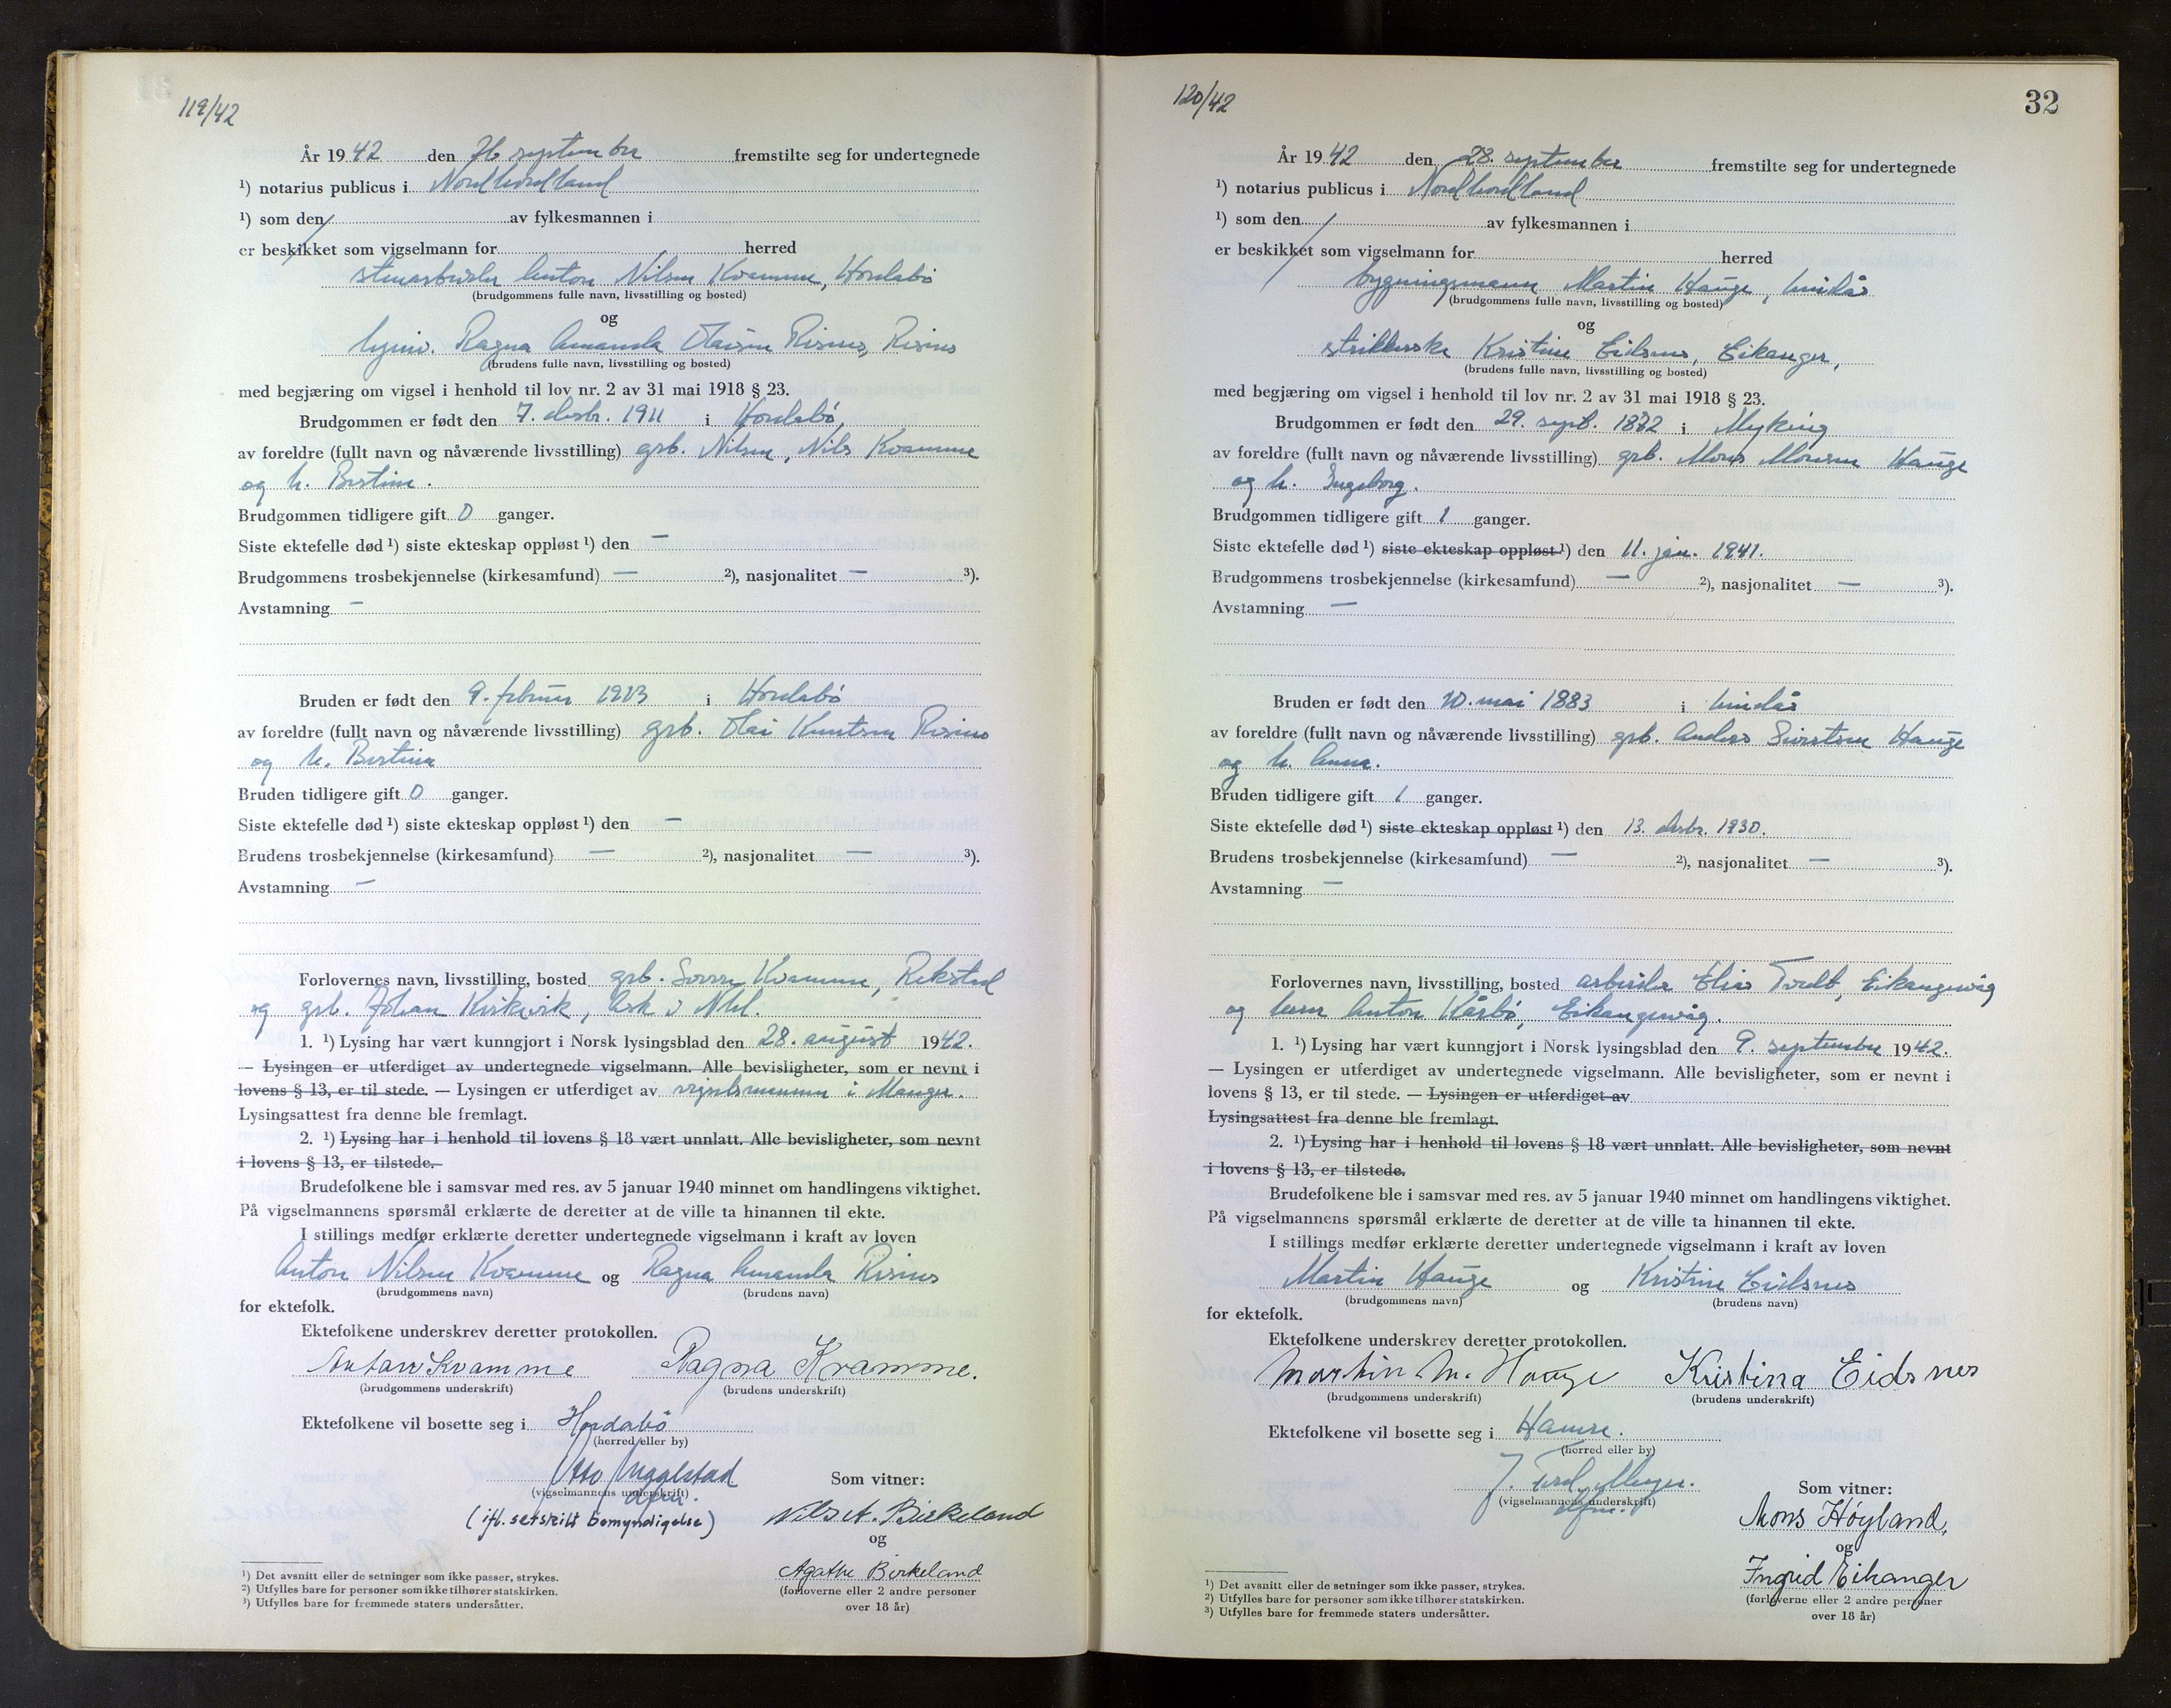 119/42
År 1942 den 26 september fremstilte seg for undertegnede
¹) notarius publicus i Nordhordland
¹) som den / av fylkesmannen i
er beskikket som vigselmann for herred
Anton Nilsen Kvamme, Hordabø
(brudgommens fulle navn, livsstilling og bosted)
og
Ragna Amanda Olaisen Risnes, Risnes
(brudens fulle navn, livsstilling og bosted)
med begjæring om vigsel i henhold til lov nr. 2 av 31 mai 1918 § 23.
Brudgommen er født den 7. desbr. 1911 i Hordabø,
av foreldre (fullt navn og nåværende livsstilling) grb. Nilsen, Nils Kvamme
og h. Bertine.
Brudgommen tidligere gift 0 ganger.
Siste ektefelle død ¹) siste ekteskap oppløst ¹) den —
Brudgommens trosbekjennelse (kirkesamfund) — ²), nasjonalitet — ³).
Avstamning —
Bruden er født den 9. februar 1923 i Hordabø
av foreldre (fullt navn og nåværende livsstilling) grb. Olai Knutsen Risnes
og h. Bertina
Bruden tidligere gift 0 ganger.
Siste ektefelle død ¹) siste ekteskap oppløst ¹) den —
Brudens trosbekjennelse (kirkesamfund) — ²), nasjonalitet — ³).
Avstamning —
Forlovernes navn, livsstilling, bosted grb. Sverre Kvamme, Rikstad
og grb. Johan Kirkvik, Ask i Nhl.
1. ¹) Lysing har vært kunngjort i Norsk lysingsblad den 28. august 1942.
— Lysingen er utferdiget av undertegnede vigselmann. Alle bevisligheter, som er nevnt i
lovens § 13, er til stede. — Lysingen er utferdiget av vigselsmannen i Manger.
Lysingsattest fra denne ble fremlagt.
2. ¹) Lysing har i henhold til lovens § 18 vært unnlatt. Alle bevisligheter, som nevnt
i lovens § 13, er tilstede.
Brudefolkene ble i samsvar med res. av 5 januar 1940 minnet om handlingens viktighet.
På vigselmannens spørsmål erklærte de deretter at de ville ta hinannen til ekte.
I stillings medfør erklærte deretter undertegnede vigselmann i kraft av loven
Anton Nilsen Kvamme og Ragna Amanda Risnes
(brudgommens navn) (brudens navn)
for ektefolk.
Ektefolkene underskrev deretter protokollen.
Anton Kvamme Ragna Kvamme.
(brudgommens underskrift) (brudens underskrift)
Ektefolkene vil bosette seg i Hordabø
(herred eller by)
Otto
(vigselmannens underskrift)
dfm.
(ifl. serskilt bemyndigelse)
Som vitner:
Nils A. Birkeland
og
Agathe Birkeland
(forloverne eller 2 andre personer
over 18 år)
¹) Det avsnitt eller de setninger som ikke passer, strykes.
²) Utfylles bare for personer som ikke tilhører statskirken.
³) Utfylles bare for fremmede staters undersåtter.
120/42
32
År 1942 den 28. september fremstilte seg for undertegnede
¹) notarius publicus i Nordhordland
¹) som den / av fylkesmannen i
er beskikket som vigselmann for herred
bygningsmann Martin Hauge, Lindås
(brudgommens fulle navn, livsstilling og bosted)
og
strikkerske Kristine Eidsnes, Eikanger,
(brudens fulle navn, livsstilling og bosted)
med begjæring om vigsel i henhold til lov nr. 2 av 31 mai 1918 § 23.
Brudgommen er født den 29. septb. 1882 i Myking
av foreldre (fullt navn og nåværende livsstilling) grb. Mons Monsen Hauge
og h. Ingeborg.
Brudgommen tidligere gift 1 ganger.
Siste ektefelle død ¹) siste ekteskap oppløst ¹) den 11. jan. 1941.
Brudgommens trosbekjennelse (kirkesamfund) — ²), nasjonalitet — ³).
Avstamning —
Bruden er født den 20. mai 1883 i Lindås
av foreldre (fullt navn og nåværende livsstilling) grb. Anders Sjurtsen Hauge
og h. Anna.
Bruden tidligere gift 1 ganger.
Siste ektefelle død ¹) siste ekteskap oppløst ¹) den 13. desbr. 1930.
Brudens trosbekjennelse (kirkesamfund) — ²), nasjonalitet — ³).
Avstamning —
Forlovernes navn, livsstilling, bosted arbeider Elias Tvedt, Eikangervåg
og Anton Kårbø, Eikangervåg.
1. ¹) Lysing har vært kunngjort i Norsk lysingsblad den 9. september 1942.
— Lysingen er utferdiget av undertegnede vigselmann. Alle bevisligheter, som er nevnt i
lovens § 13, er til stede. — Lysingen er utferdiget av
Lysingsattest fra denne ble fremlagt.
2. ¹) Lysing har i henhold til lovens § 18 vært unnlatt. Alle bevisligheter, som nevnt
i lovens § 13, er tilstede.
Brudefolkene ble i samsvar med res. av 5 januar 1940 minnet om handlingens viktighet.
På vigselmannens spørsmål erklærte de deretter at de ville ta hinannen til ekte.
I stillings medfør erklærte deretter undertegnede vigselmann i kraft av loven
Martin Hauge og Kristine Eidsnes
(brudgommens navn) (brudens navn)
for ektefolk.
Ektefolkene underskrev deretter protokollen.
Martin M. Hauge Kristina Eidsnes
(brudgommens underskrift) (brudens underskrift)
Ektefolkene vil bosette seg i Hamre.
(herred eller by)
(vigselmannens underskrift)
dfm.
Som vitner:
Mons Høyland,
og
Ingrid Eikanger
(forloverne eller 2 andre personer
over 18 år)
¹) Det avsnitt eller de setninger som ikke passer, strykes.
²) Utfylles bare for personer som ikke tilhører statskirken.
³) Utfylles bare for fremmede staters undersåtter.